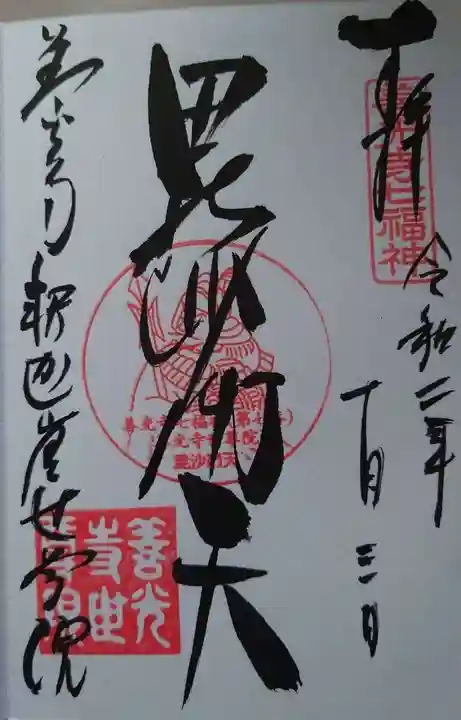 奉拝
善光寺七福神
令和二年
十月三日
毘沙門天
善光寺七福
毘沙門天
善光寺
釈迦堂世尊院
善光
寺世
尊院